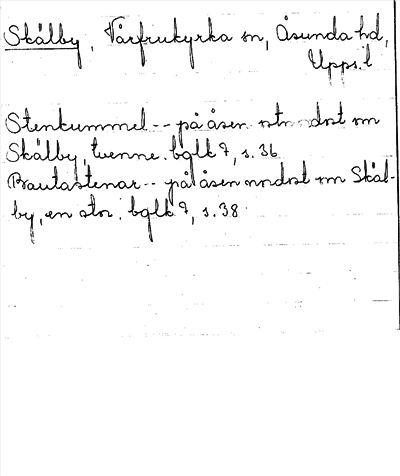 Skälby, Vårfrukyrka sn, Åsunda hd,
Upps. l
Stenkummel -- på åsen ostnordost om
Skälby, tvenne. bglk 7, s. 36
Bautastenar -- på åsen nordost om Skäl-
by, en stor. bglk 7, s. 38